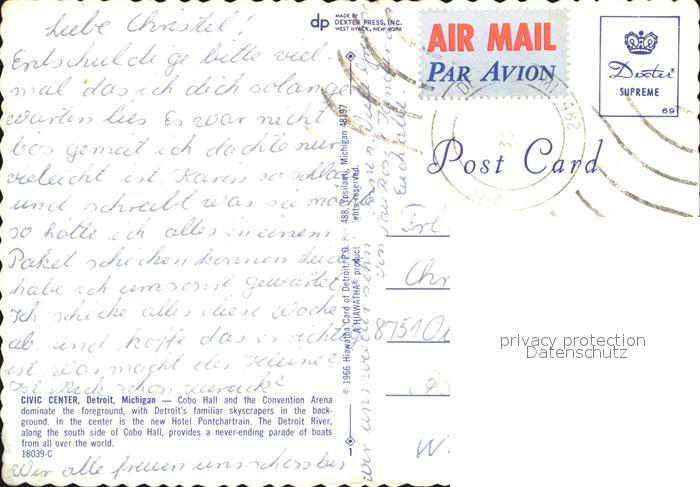 Liebe Christel!
Entschuldige bitte viel-
mal das ich dich solange
warten lies Es war nicht
bös gemeit ich dachte nur
vieleicht ist Karen so schlau
und schreibt was sie möchte
so hätte ich alles in einem
Paket schicken können leider
habe ich umsonst gewartet.
Ich schicke alles diese Woche
ab und hoffe das es richtig
ist. Was macht der Kleine?
Ist Nick schon zurück?
CIVIC CENTER, Detroit, Michigan — Cobo Hall and the Convention Arena
dominate the foreground, with Detroit's familiar skyscrapers in the back-
ground. In the center is the new Hotel Pontchartrain. The Detroit River,
along the south side of Cobo Hall, provides a never-ending parade of boats
from all over the world.
18039-C
Wir alle freuen uns schon bis
wir uns wieder sehn
Euch alle.
dp
MADE BY
DEXTER PRESS, INC.
WEST NYACK, NEW YORK
© 1966 Hiawatha Card of Detroit, P.O. 488, Ypsilanti, Michigan 48197
A HIAWATHA® product rights reserved.
1
AIR MAIL
PAR AVION
Dexter®
SUPREME
69
482
Post Card
Frl
Chr
8751 O
W
privacy protection
Datenschutz